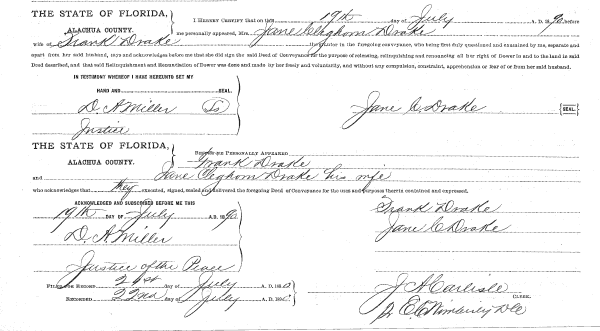 THE STATE OF FLORIDA,
ALACHUA COUNTY.
I HEREBY CERTIFY that on this 19th day of July A. D. 1890, before
me personally appeared, Mrs. Jane Cleghorn Drake
wife of Frank Drake the grantor in the foregoing conveyance, who being first duly questioned and examined by me, separate and
apart from her said husband, says and acknowledges before me that she did sign the said Deed of Conveyance for the purpose of releasing, relinquishing and renouncing all her right of Dower in and to the land in said
Deed described, and that said Relinquishment and Renunciation of Dower was done and made by her freely and voluntarily, and without any compulsion, constraint, apprehension or fear of or from her said husband.
IN TESTIMONY WHEREOF I HAVE HEREUNTO SET MY
HAND AND SEAL.
D. A. Miller
Justice
Jane C. Drake SEAL.
THE STATE OF FLORIDA,
ALACHUA COUNTY.
BEFORE ME PERSONALLY APPEARED
Frank Drake
and Jane Cleghorn Drake his wife
who acknowledges that they executed, signed, sealed and delivered the foregoing Deed of Conveyance for the uses and purposes therein contained and expressed.
ACKNOWLEDGED AND SUBSCRIBED BEFORE ME THIS
19th DAY OF July A. D. 1890
D. A. Miller
Justice of the Peace
Frank Drake
Jane C Drake
FILED FOR RECORD 21st day of July A. D. 1890
RECORDED 22nd day of July A. D. 1890
J A Carlisle
CLERK.
E C Wimberly D C